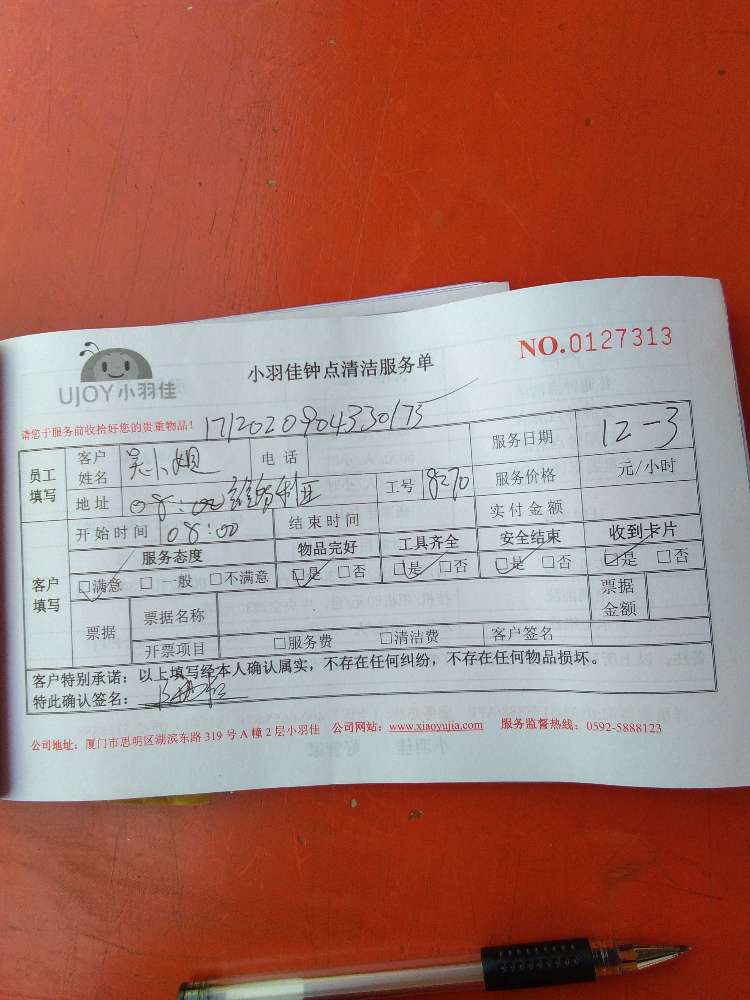 UJOY小羽佳
小羽佳钟点清洁服务单
NO.0127313
请您于服务前收拾好您的贵重物品!
员工填写 客户姓名 吴小姐 电话 服务日期 12-3
地址 08:00 工号 8270 服务价格 元/小时
开始时间 08:00 结束时间 实付金额
客户填写 服务态度 物品完好 工具齐全 安全结束 收到卡片
□满意 □一般 □不满意 □是 □否 □是 □否 □是 □否 □是 □否
票据 票据名称 票据金额
开票项目 □服务费 □清洁费 客户签名
客户特别承诺:以上填写经本人确认属实,不存在任何纠纷,不存在任何物品损坏。
特此确认签名:
公司地址:厦门市思明区湖滨东路319号A幢2层小羽佳 公司网站:www.xiaoyujia.com 服务监督热线:0592-5888123